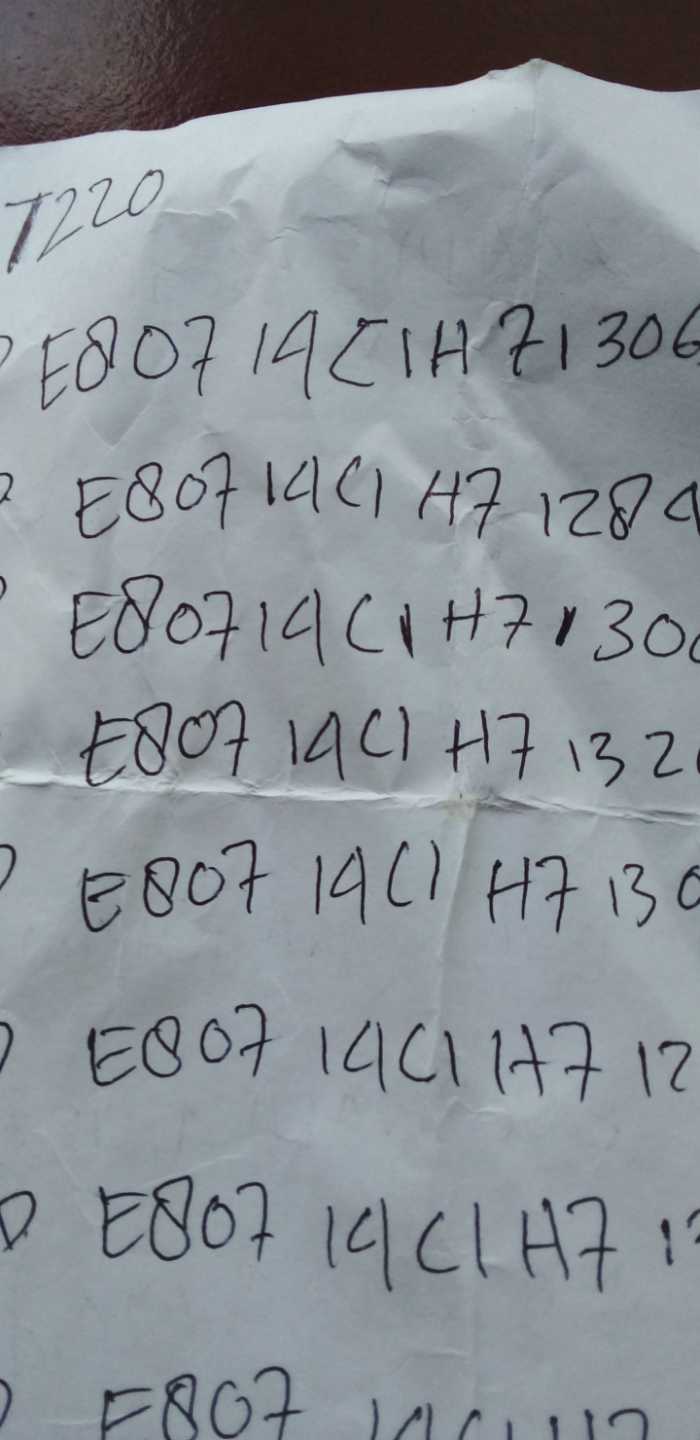 T220
E807 14C1H71306
E807 14C1 H7 1284
E80714C1 H7 1300
E807 14C1 H7 132
E807 14C1 H7 130
E807 14C1 H7 12
D E807 14C1 H7 13
E807 14C1 H7